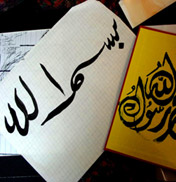 بسم الله
رسول الله